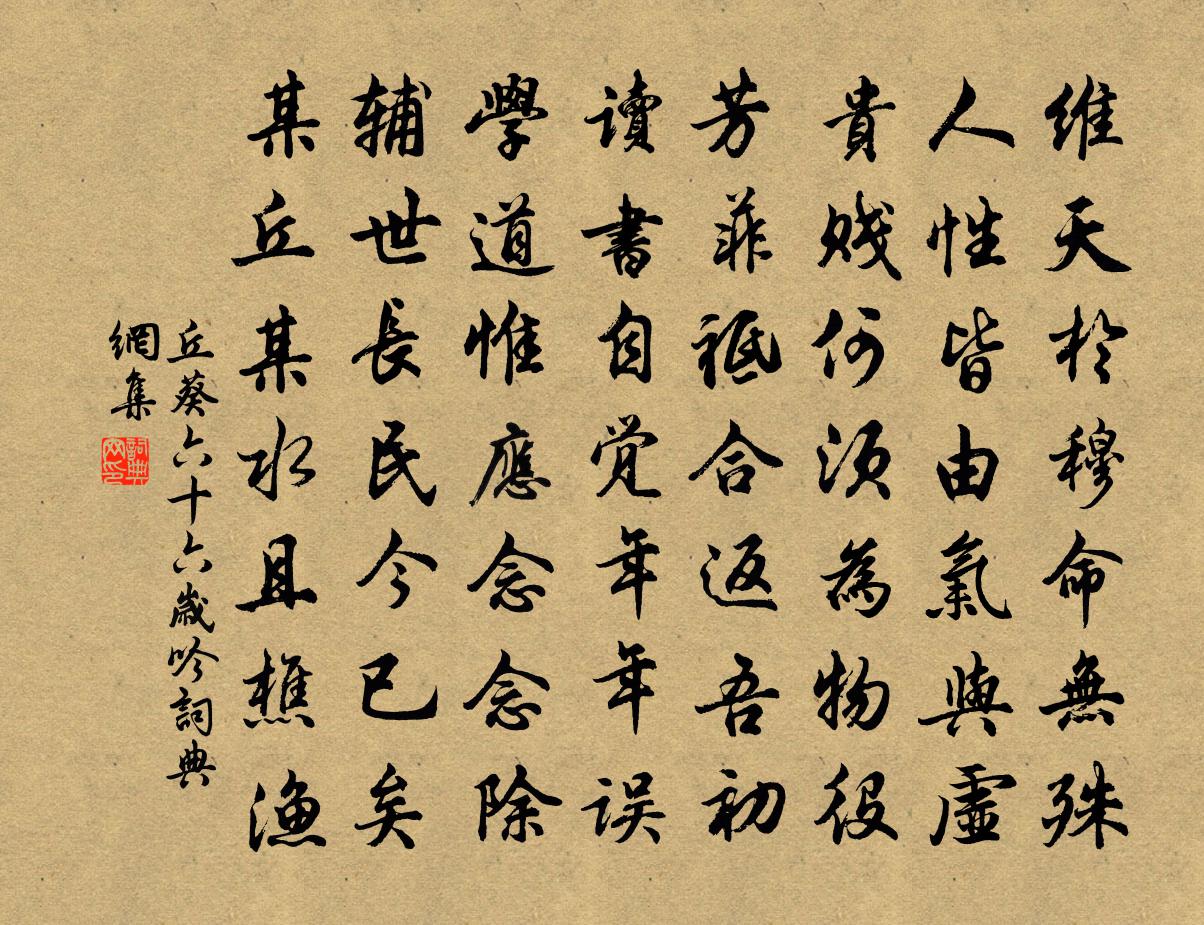 维天於穆命無殊
人性皆由氣與虛
貴贱何须為物役
芳菲祗合返吾初
读書自觉年年误
學道惟應念念除
辅世長民今已矣
某丘某水且樵渔
丘葵六十六歲吟詞典
網集
詞典
网印